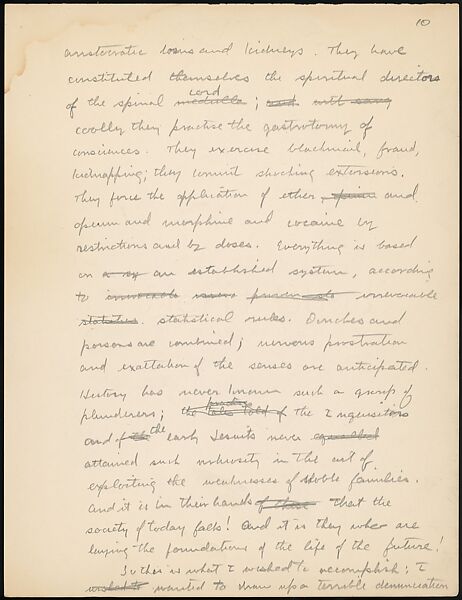 10
aristocratic loins and kidneys. They have
constituted themselves the spiritual directors
of the spinal medulla cord ; and with sang
coolly they practise the gastrotomy of
consciences. They exercise blackmail, fraud,
kidnapping; they commit shocking extorsions.
They force the application of ether, opium and
opium and morphine and cocaine by
restrictions and by doses. Everything is based
on an established system, according
to irrevocable
statutes. statistical rules. Douches and
poisons are combined; nervous prostration
and exaltation of the senses are anticipated.
History has never known such a group of
plunderers; the tales told of the Inquisitors
and of the the early Jesuits never equalled
attained such virtuosity in the art of
exploiting the weaknesses of noble families.
And it is in their hands of these that the
society of today falls! And it is they who are
laying the foundations of the life of the future!
So this is what I wished to accomplish; I
wished to wanted to draw up a terrible denunciation